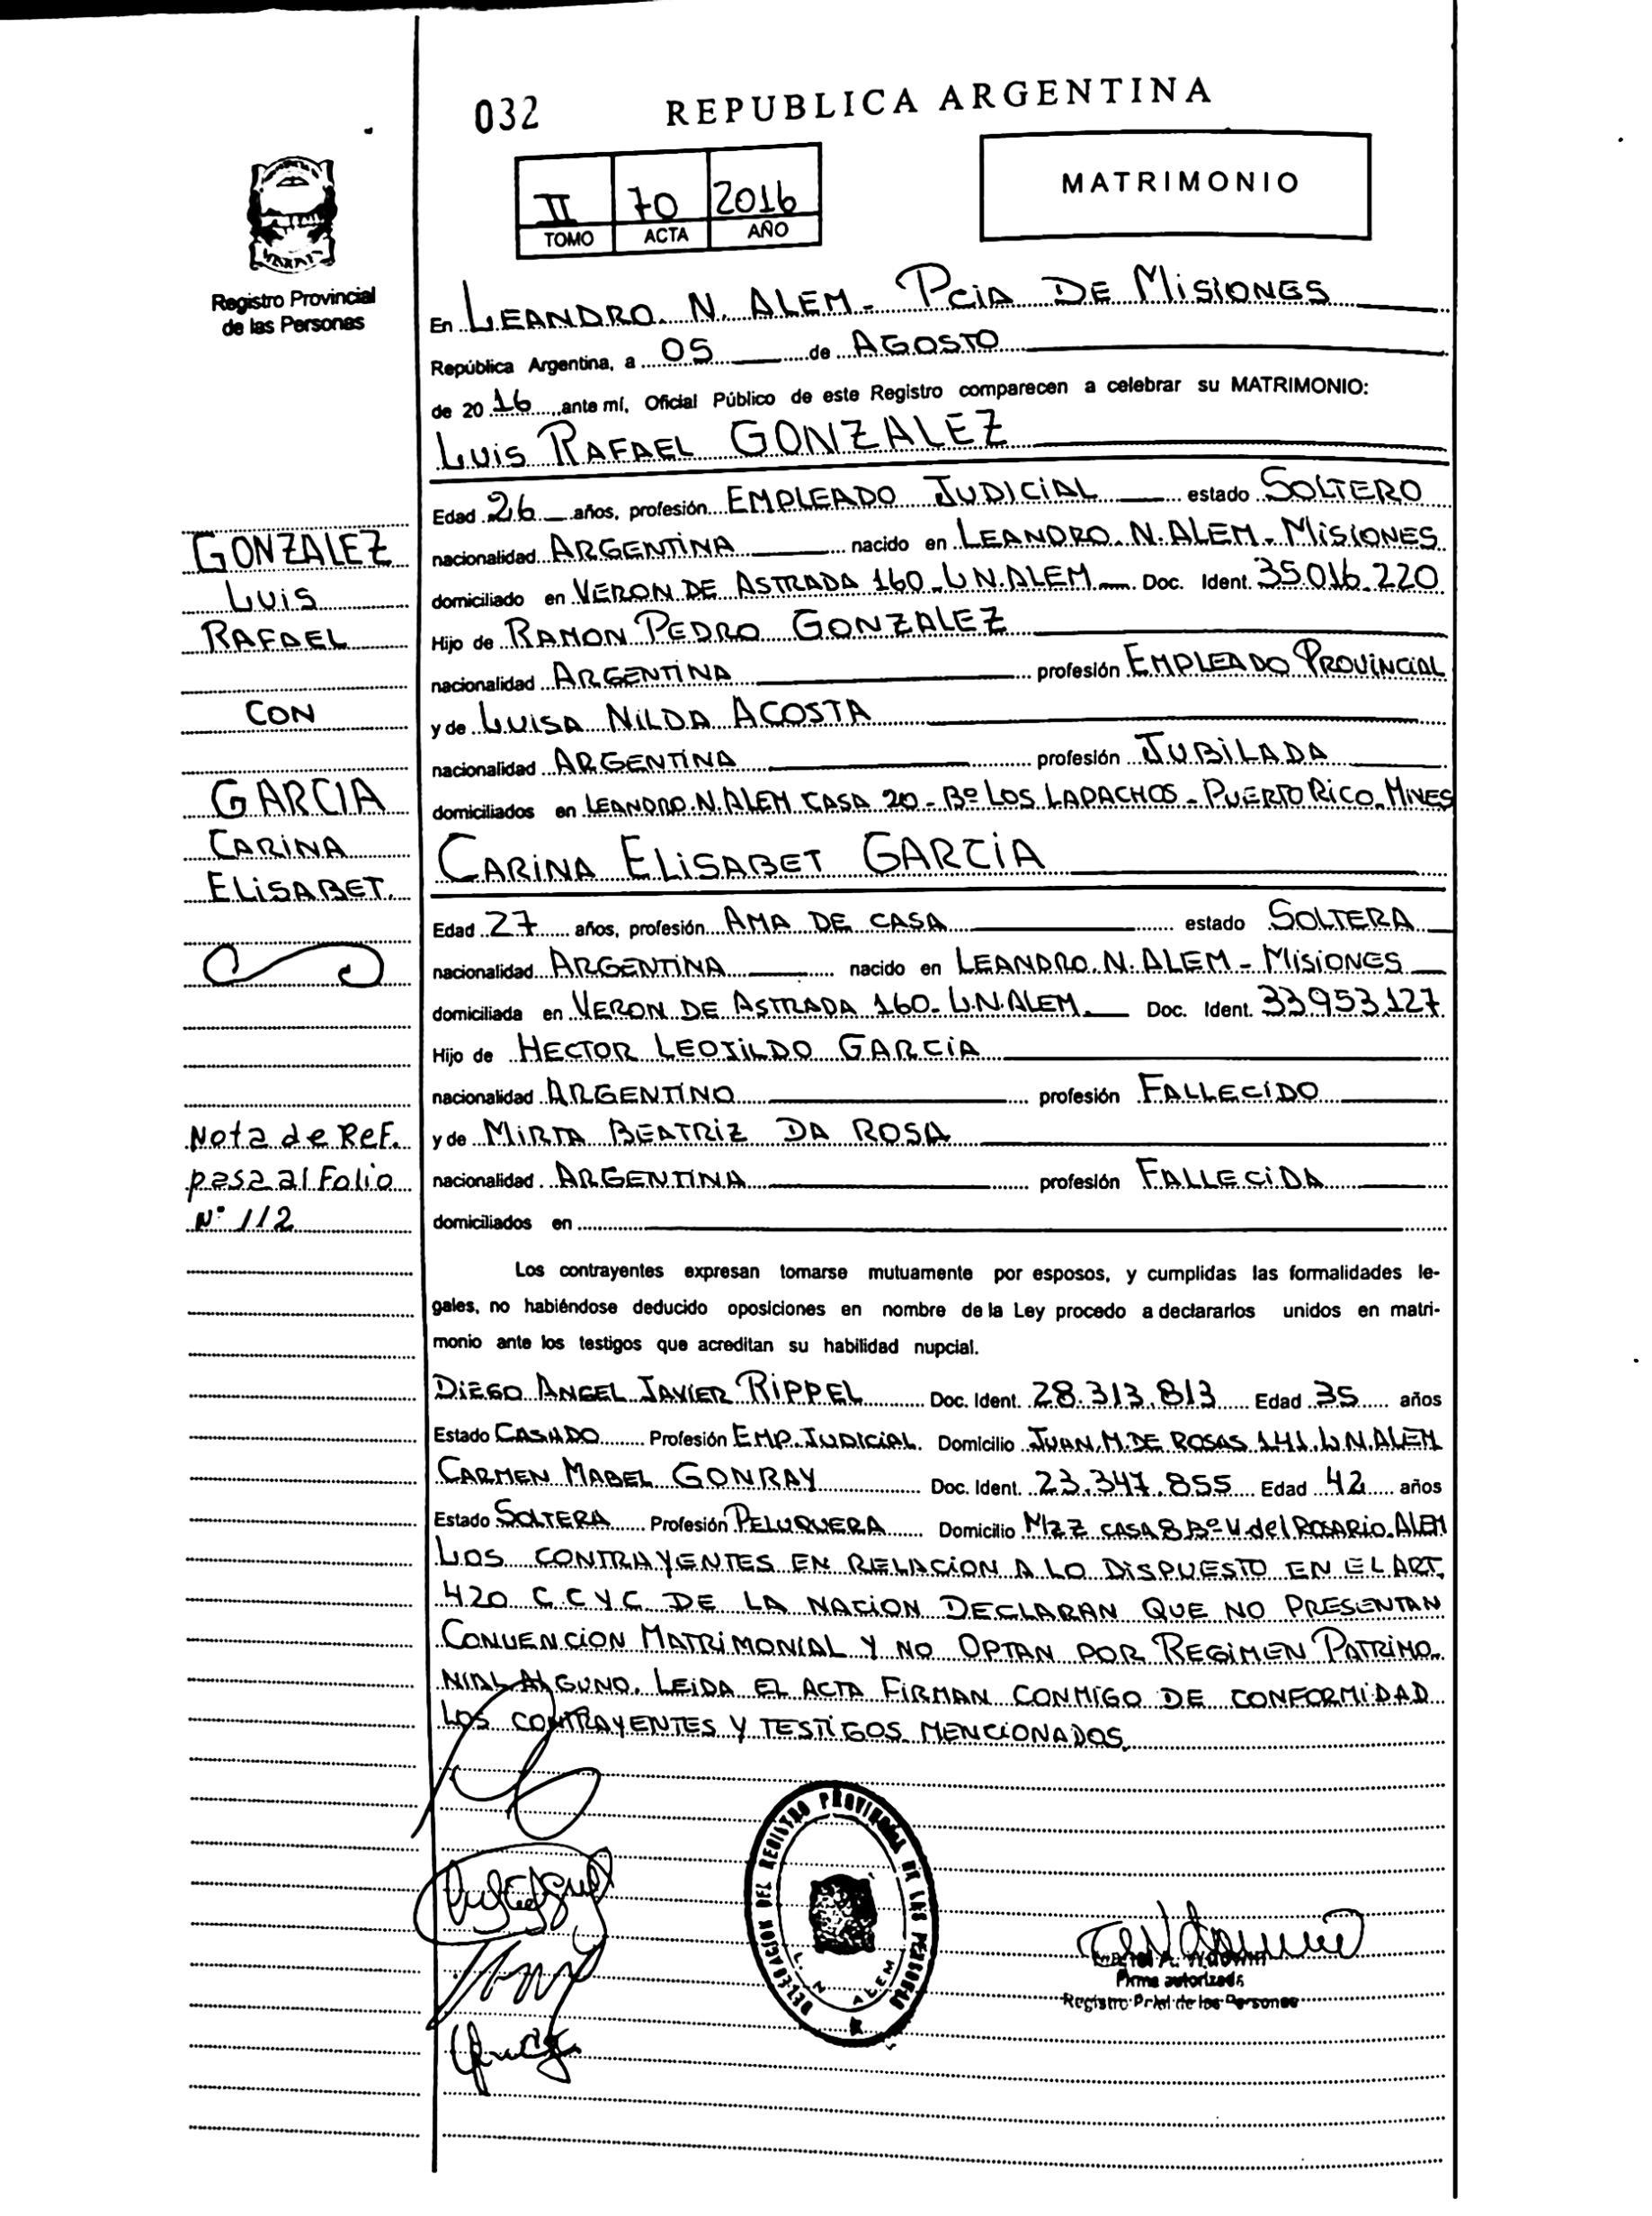 032 REPUBLICA ARGENTINA
MATRIMONIO
II 70 2016
TOMO ACTA AÑO
Registro Provincial
de las Personas
En LEANDRO. N. ALEM - Pcia DE MISIONES
República Argentina, a 05 de AGOSTO
de 20 16 ante mí, Oficial Público de este Registro comparecen a celebrar su MATRIMONIO:
LUIS RAFAEL GONZALEZ
Edad 26 años, profesión EMPLEADO JUDICIAL estado SOLTERO
nacionalidad ARGENTINA nacido en LEANDRO. N. ALEM - MISIONES
domiciliado en VERON DE ASTRADA 160 - L.N.ALEM Doc. Ident. 35.016.220
Hijo de RAMON PEDRO GONZALEZ
nacionalidad ARGENTINA profesión EMPLEADO PROVINCIAL
y de LUISA NILDA ACOSTA
nacionalidad ARGENTINA profesión JUBILADA
domiciliados en LEANDRO.N.ALEM CASA 20 - Bº LOS LAPACHOS - PUERTO RICO. MNES
CARINA ELISABET GARCIA
Edad 27 años, profesión AMA DE CASA estado SOLTERA
nacionalidad ARGENTINA nacido en LEANDRO. N. ALEM - MISIONES
domiciliada en VERON DE ASTRADA 160 - L.N.ALEM. Doc. Ident. 33.953.127
Hijo de HECTOR GARCIA
nacionalidad ARGENTINO profesión FALLECIDO
y de MIRTA BEATRIZ DA ROSA
nacionalidad ARGENTINA profesión FALLECIDA
domiciliados en
GONZALEZ
LUIS
RAFAEL
CON
GARCIA
CARINA
ELISABET.
Nota de REF.
pasa al Folio
Nº 112
Los contrayentes expresan tomarse mutuamente por esposos, y cumplidas las formalidades le-
gales, no habiéndose deducido oposiciones en nombre de la Ley procedo a declararlos unidos en matri-
monio ante los testigos que acreditan su habilidad nupcial.
DIEGO ANGEL JAVIER RIPPEL Doc. Ident. 28.313.813 Edad 35 años
Estado CASADO Profesión EMP. JUDICIAL Domicilio JUAN. M. DE ROSAS 141. L.N.ALEM
CARMEN MABEL GONRAY Doc. Ident. 23.347.855 Edad 42 años
Estado SOLTERA Profesión PELUQUERA Domicilio CASA 8 Bº V. del ROSARIO. ALEM
LOS CONTRAYENTES EN RELACION A LO DISPUESTO EN EL ART.
420 C.C Y C. DE LA NACION DECLARAN QUE NO PRESENTAN
CONVENCION MATRIMONIAL Y NO OPTAN POR REGIMEN PATRIMO-
NIAL ALGUNO. LEIDA EL ACTA FIRMAN CONMIGO DE CONFORMIDAD
LOS CONTRAYENTES Y TESTIGOS MENCIONADOS.
DELEGACION DEL REGISTRO PROVINCIAL DE LAS PERSONAS
L. N. ALEM
Firma autorizada
Registro de las Personas